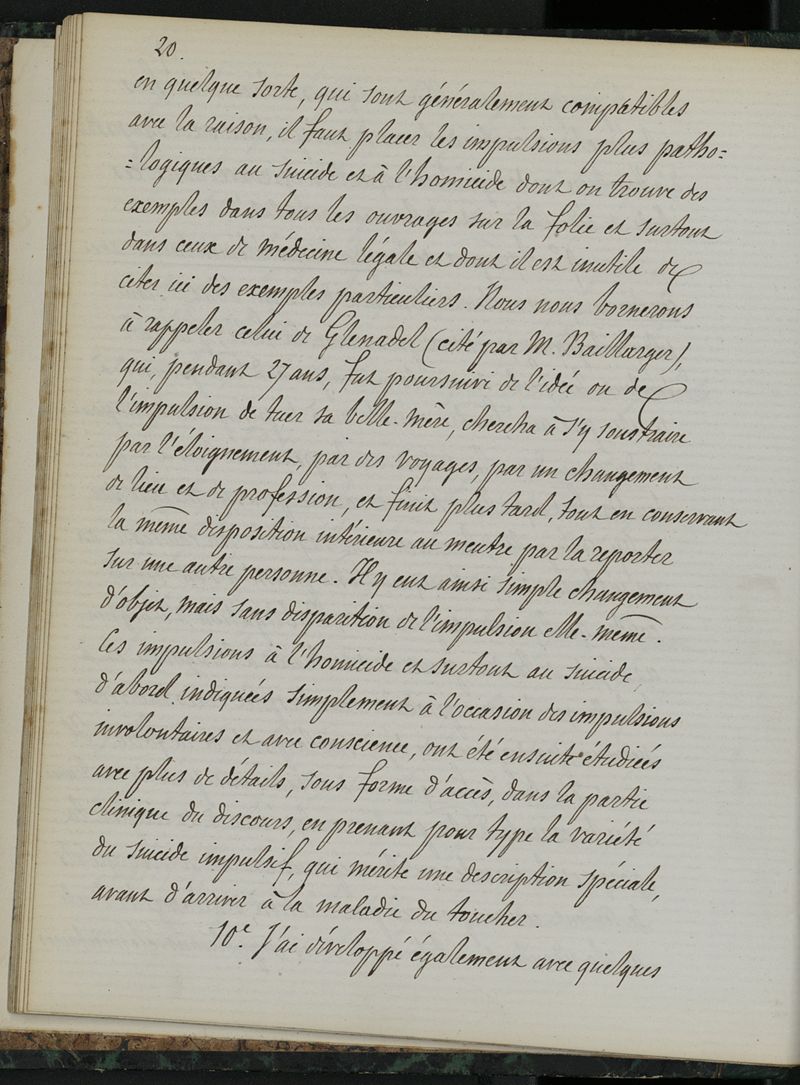 20.
en quelque sorte, qui sont généralement compatibles
avec la raison, il faut placer les impulsions plus patho=
=logiques au suicide et à l'homicide dont on trouve des
exemples dans tous les ouvrages sur la folie et surtout
dans ceux de médecine légale et dont il est inutile de
citer ici des exemples particuliers. Nous nous bornerons
à rappeler celui de Glenadel (cité par M. Baillarger),
qui, pendant 27 ans, fut poursuivi de l'idée ou de
l'impulsion de tuer sa belle-mère, chercha à s'y soustraire
par l'éloignement, par des voyages, par un changement
de lieu et de profession, et finit plus tard, tout en conservant
la même disposition intérieure au meutre par la reporter
sur une autre personne. Il y eut ainsi simple changement
d'objet, mais sans disparition de l'impulsion elle-même.
Ces impulsions à l'homicide et surtout au suicide,
d'abord indiquées simplement à l'occasion des impulsions
involontaires et avec conscience, ont été ensuite étudiées
avec plus de détails, sous forme d'accès, dans la partie
clinique du discours, en prenant pour type la variété
du suicide impulsif, qui mérite une description spéciale,
avant d'arriver à la maladie du toucher.
10e. J'ai développé également avec quelques